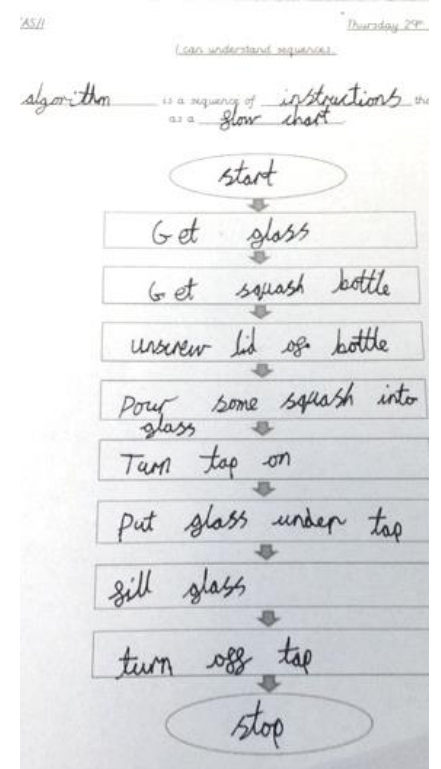 AS/1 Thursday 29th
I can understand sequences.
algorithm is a sequence of instructions tha
as a flow chart
start
Get glass
Get squash bottle
unscrew lid of bottle
Pour some squash into
glass
Turn tap on
Put glass under tap
fill glass
turn off tap
stop